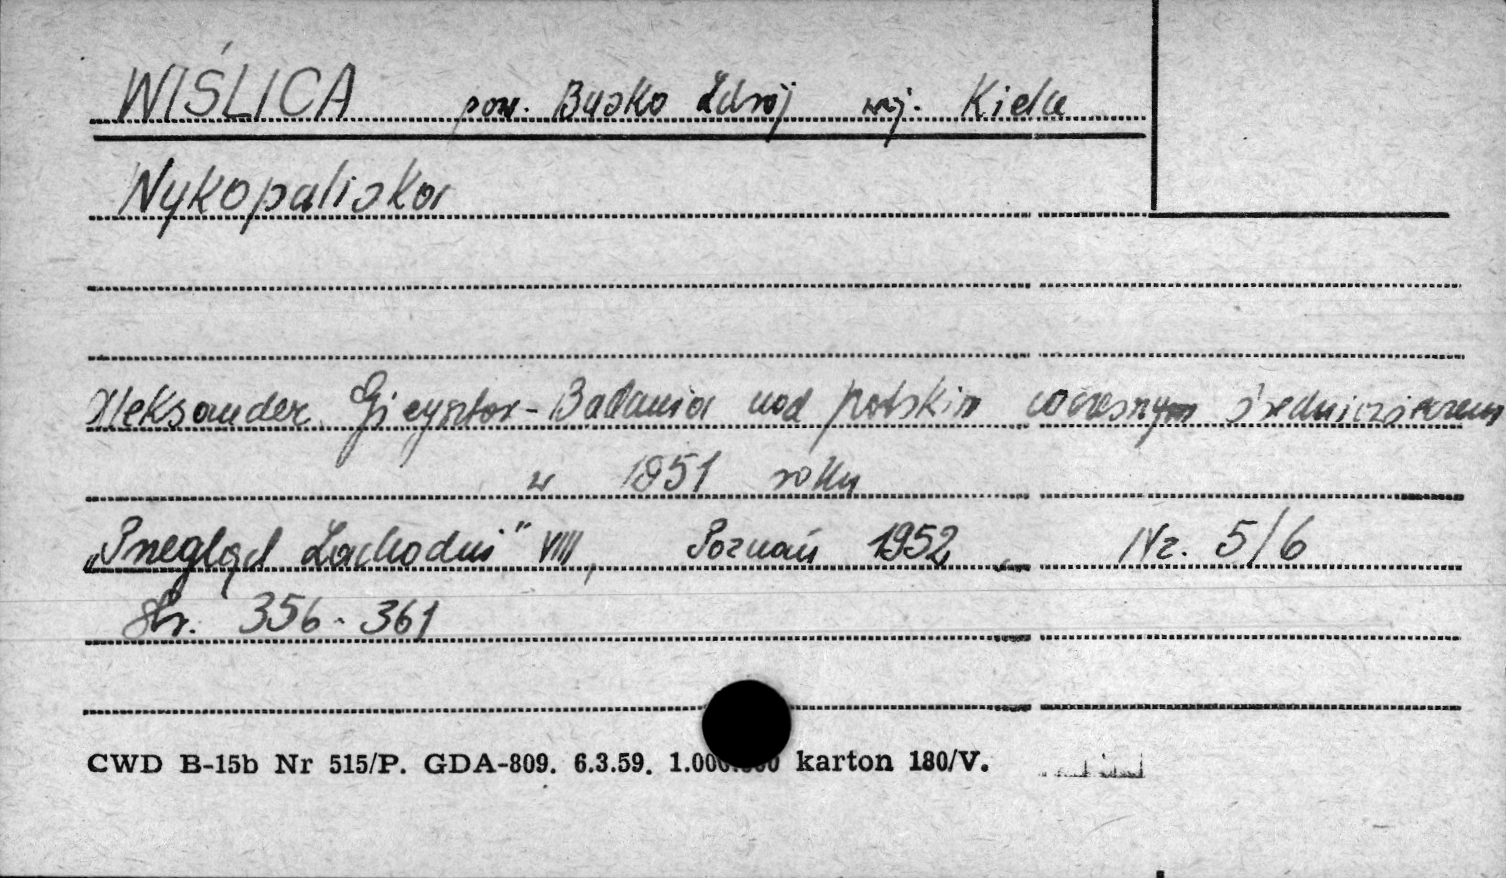 WIŚLICA pow. Busko Zdrój woj. Kielce
Wykopaliska
Aleksander Gieysztor - Badania nad polskim wczesnym średniowieczem
w 1951 roku
„Przegląd Zachodni" VIII, Poznań 1952, Nr. 5/6
Str. 356-361
CWD B-15b Nr 515/P. GDA-809. 6.3.59. 1.000.000 karton 180/V.